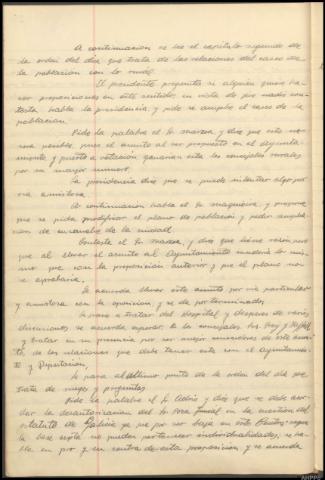 A continuacion se lee el capitulo segundo de
la orden del dia que trata de las relaciones del casco de
la poblacion con lo rural.
El presidente pregunta si alguien quiere ha-
cer proposiciones en este sentido, en vista de que nadie con-
testa habla la presidencia, y pide se amplie el casco de la
poblacion.
Pide la palabra el Sr. y dice que esto no
sera posible, pues el asunto al ser propuesto en el Ayunta-
miento, y puesto a votacion ganarian esta los concejales rurales
por su mayor numero.
La presidencia dice que se puede intentar algo por
via amistosa.
A continuacion habla el Sr. y propone
que se pida modificar el plano de poblacion y pedir amplia-
cion de ensanche de la ciudad.
Contesta el Sr. y dice que tiene razon pero
que al llevar el asunto al Ayuntamiento sucederia lo mis-
mo que con la proposicion anterior y que el plano no
se aprobaria.
Se acuerda llevar este asunto por via particular
y amistosa con la oposicion, y se da por terminado.
Se pasa a tratar del Hospital y despues de varias
discusiones se acuerda esperar a los concejales Srs. Rey y
y tratar en su presencia por ser mejor conocedores de este asun-
to, de las relaciones que debe tener este con el Ayuntamien-
to y Diputacion.
Se pasa al ultimo punto de la orden del dia que
trata de ruegos y preguntas.
Pide la palabra el Sr. y dice que se debe acor-
dar la desautorizacion del Sr. Poza Juncal en la cuestion del
estatuto de Galicia ya que por ser baja en este Centro segun
la base sexta no pueden pertenecer individualidades, se ha-
bla en pro y en contra de esta proposicion y se acuerda
AHPPO